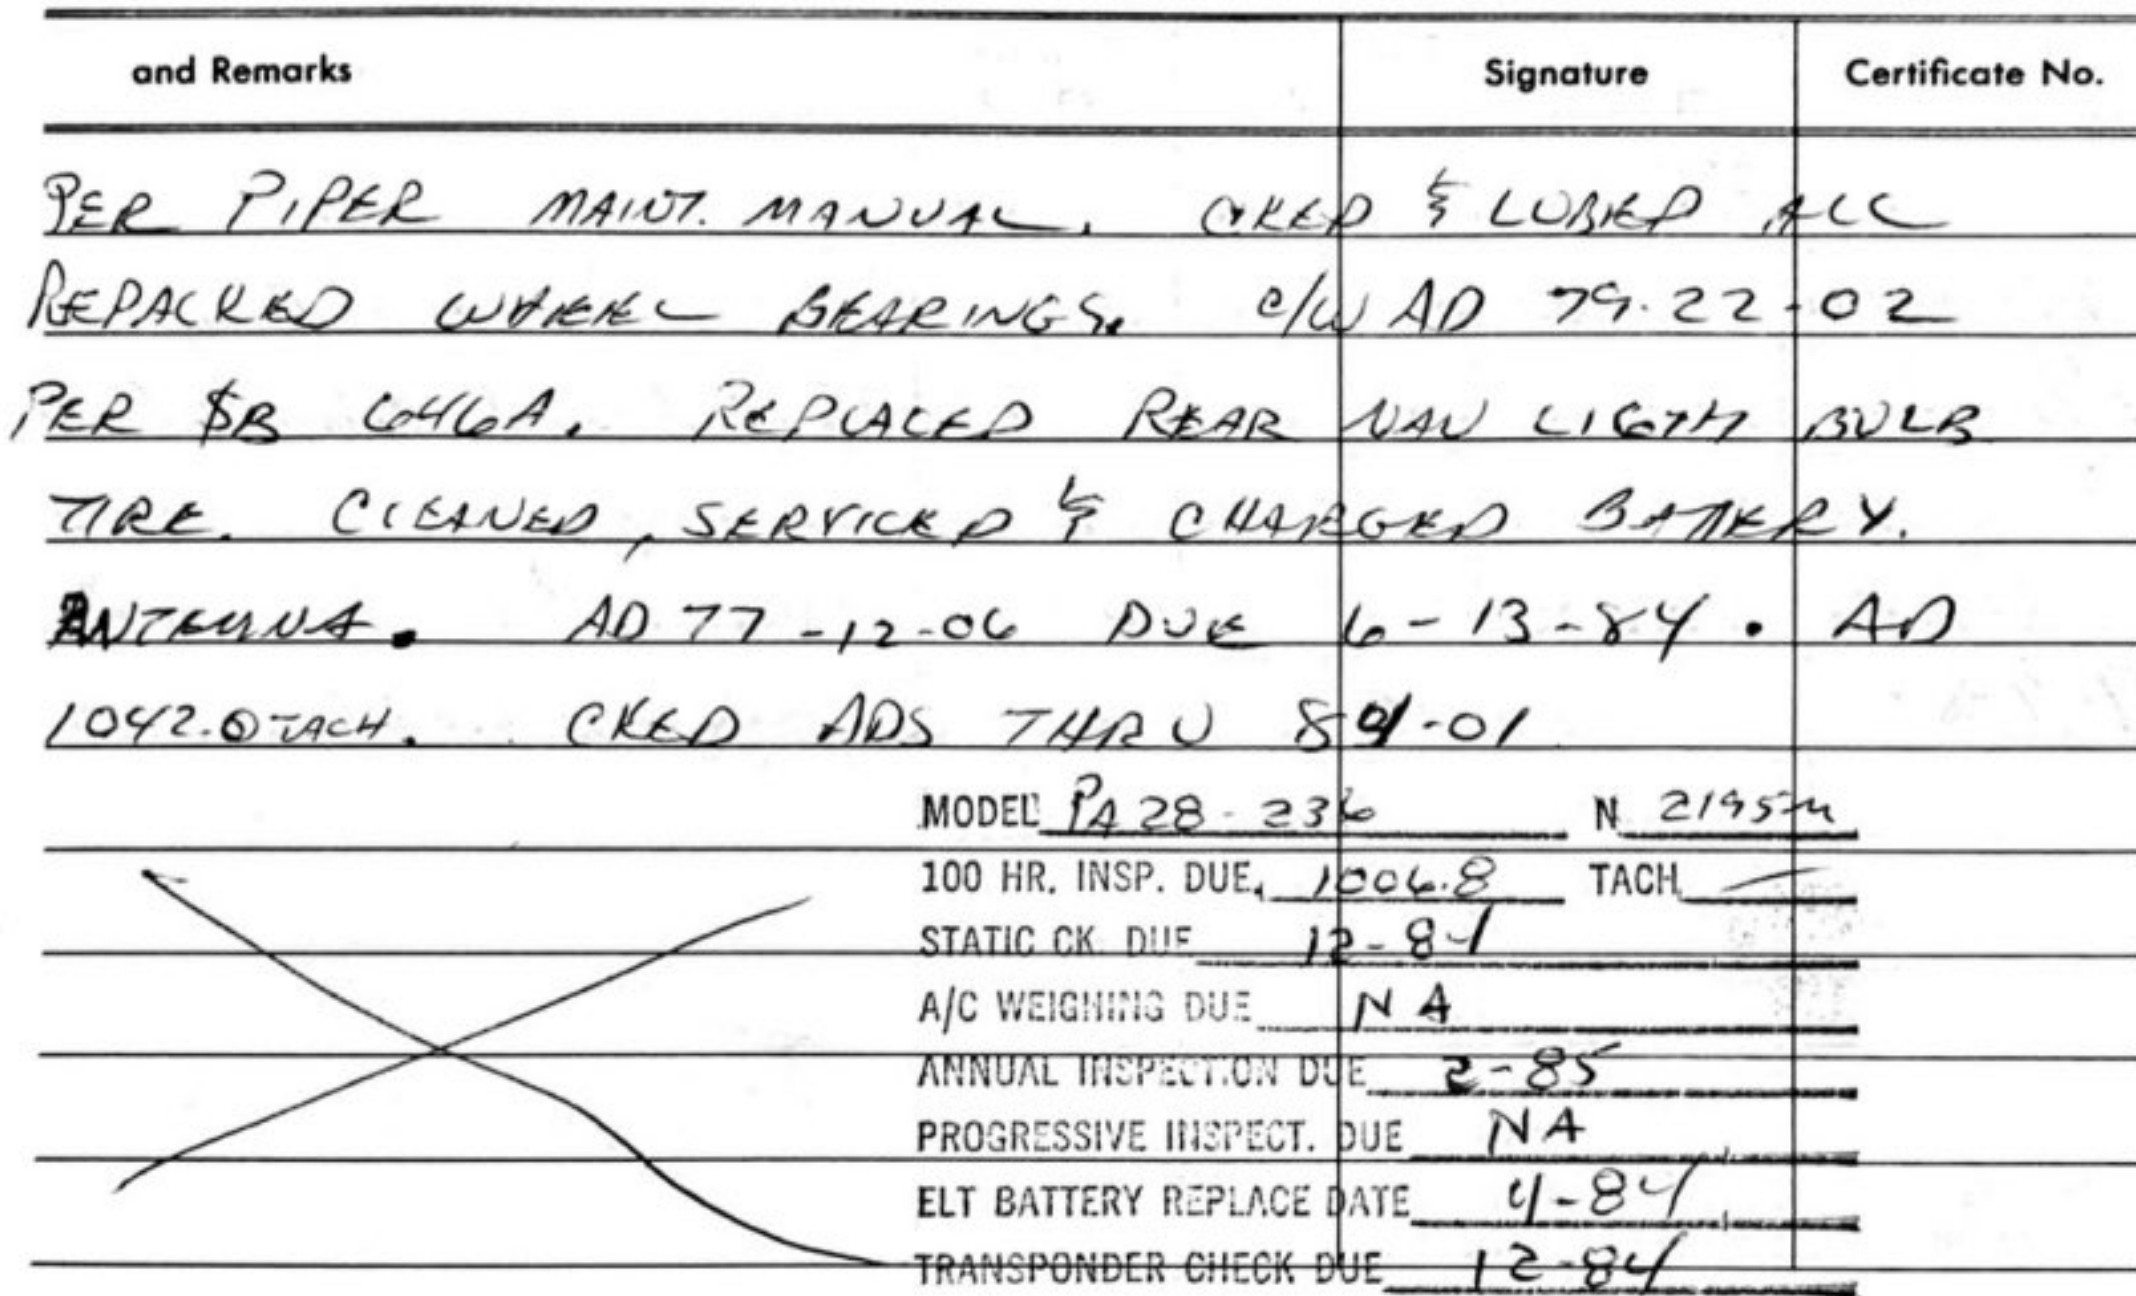 and Remarks Signature Certificate No.
PER PIPER MAINT. MANUAL. CKED & LUBED ALL
REPACKED WHEEL BEARINGS. C/W AD 79-22-02
PER SB 646A. REPLACED REAR NAV LIGTH BULB
TIRE. CLEANED, SERVICED & CHARGED BATTERY.
ANTENNA. AD 77-12-06 DUE 6-13-84. AD
1042.0 TACH. CKED ADS THRU 84-01
MODEL PA 28-236 N 2195M
100 HR. INSP. DUE. 1006.8 TACH —
STATIC CK. DUE 12-84
A/C WEIGHING DUE NA
ANNUAL INSPECTION DUE 2-85
PROGRESSIVE INSPECT. DUE NA
ELT BATTERY REPLACE DATE 4-84
TRANSPONDER CHECK DUE 12-84